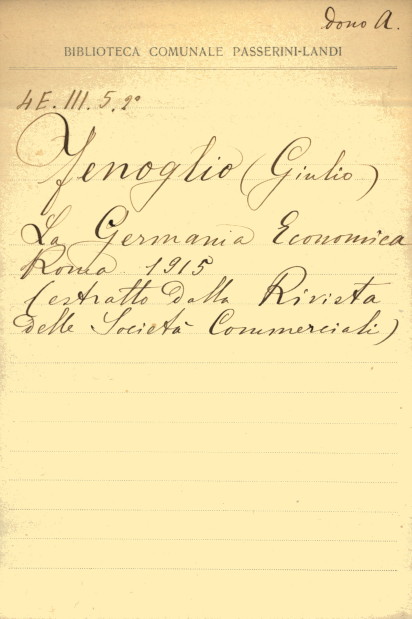 dono A.
BIBLIOTECA COMUNALE PASSERINI-LANDI
4E.III.5.2º
Fenoglio (Giulio)
La Germania Economica
Roma 1915
(estratto dalla Rivista
delle Società Commerciali)